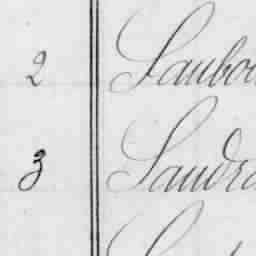 2 Saubou
3 Saudra